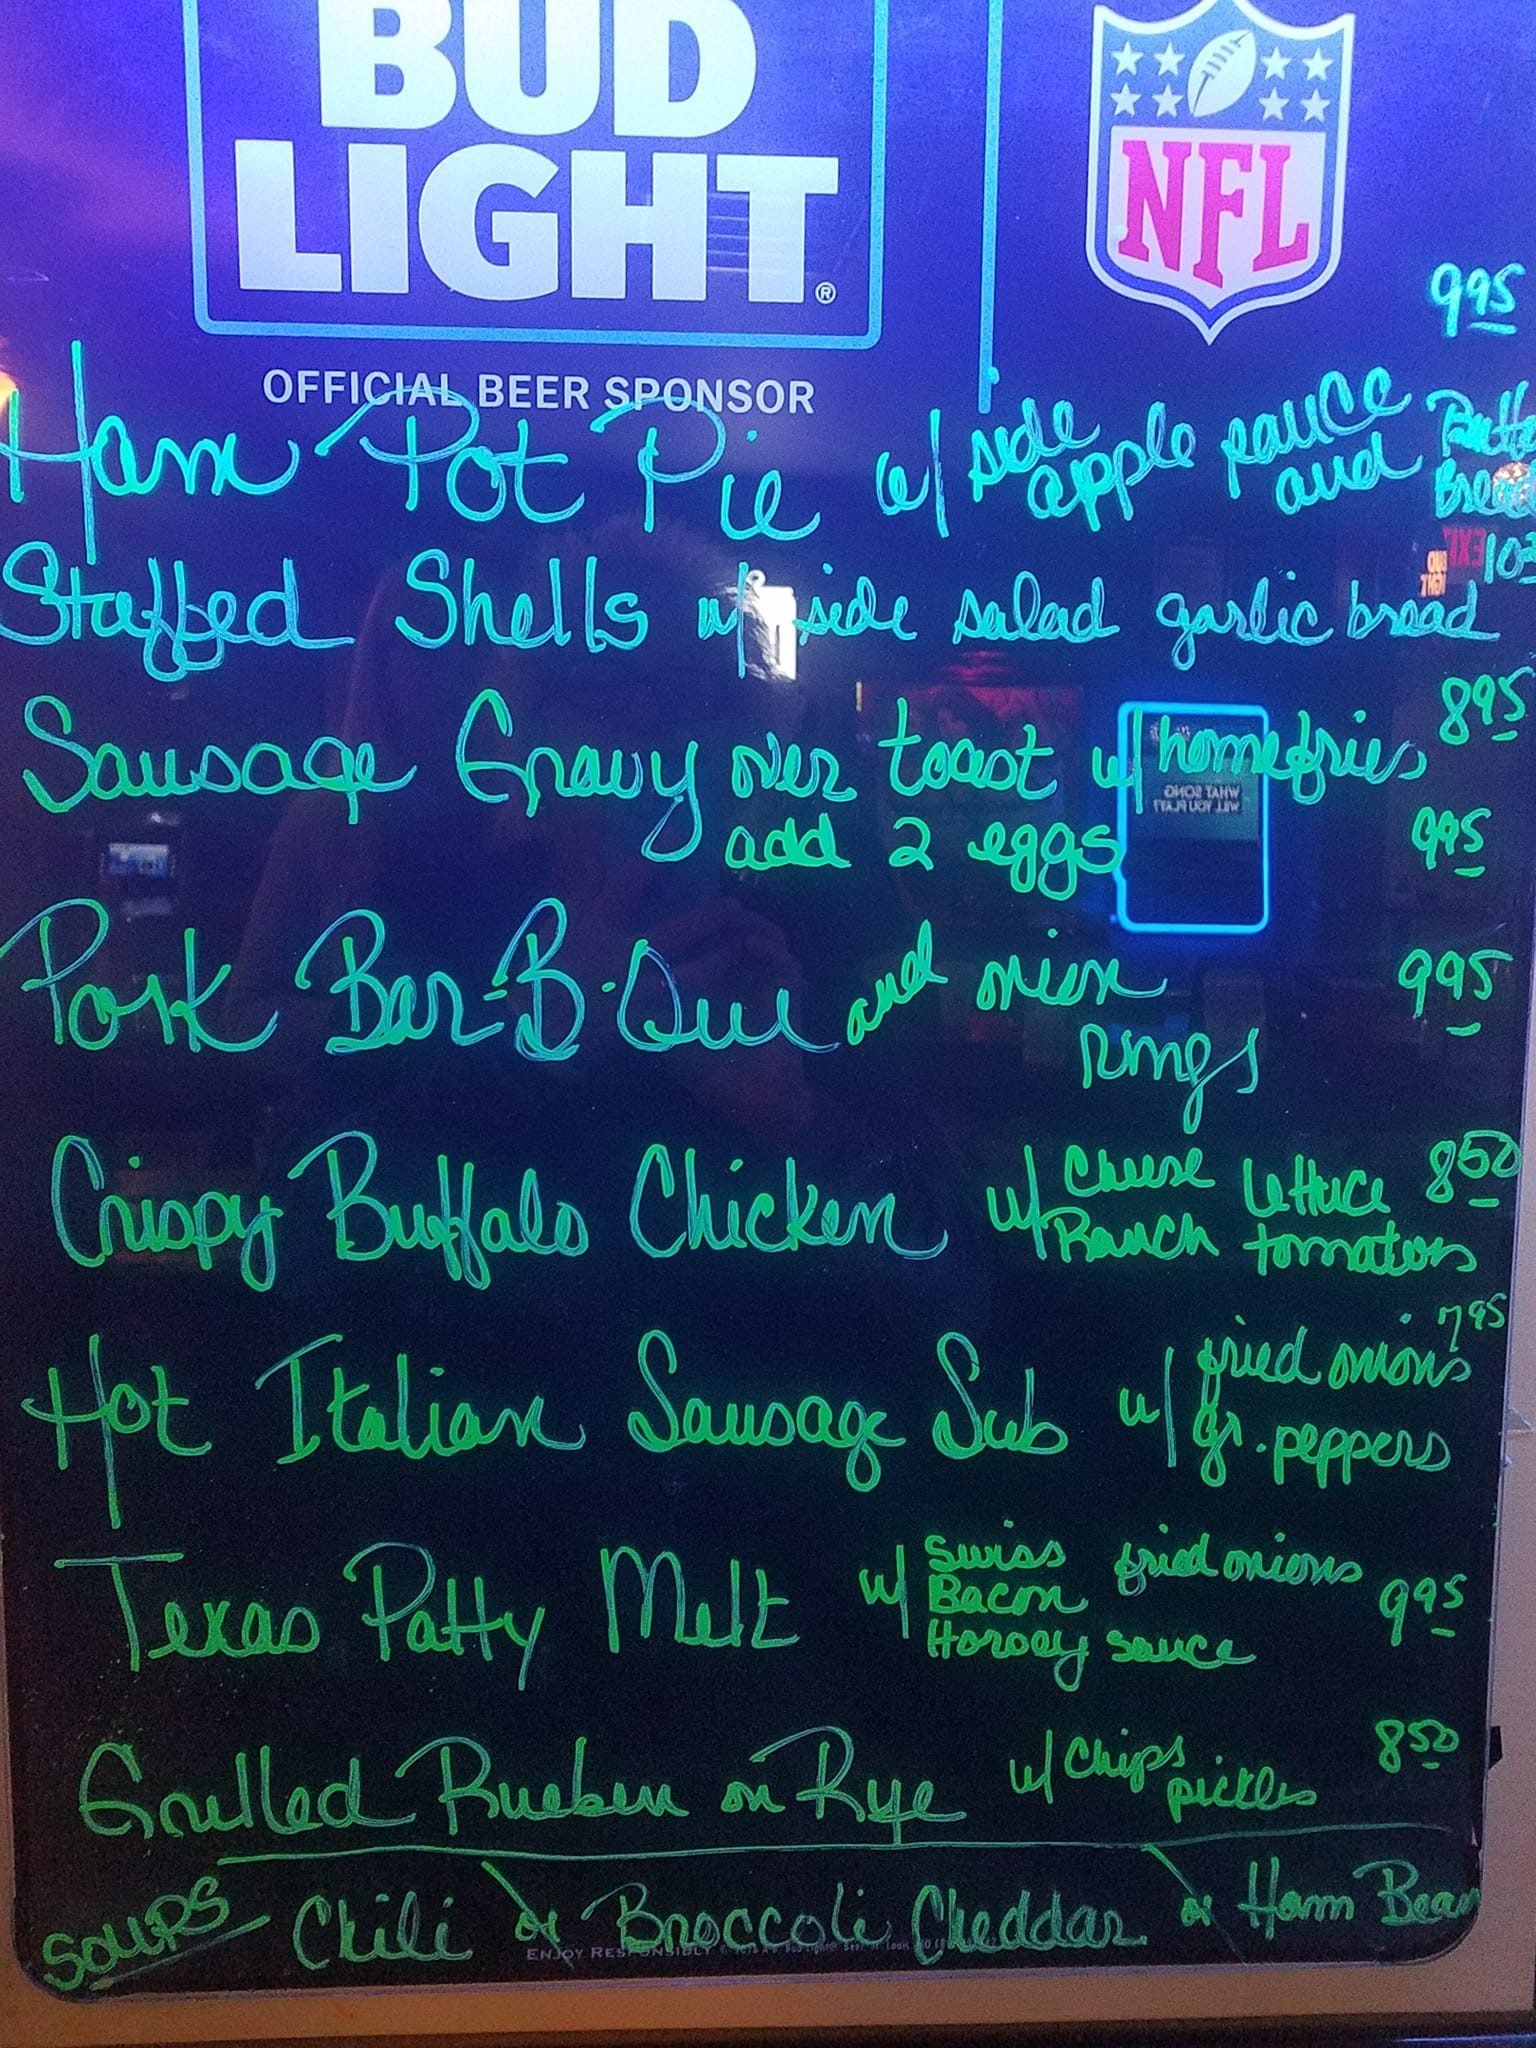 BUD
LIGHT®
NFL
OFFICIAL BEER SPONSOR
9 95
Ham Pot Pie w/ side apple sauce and Butte Bread
Stuffed Shells w/ side salad garlic bread
Sausage Gravy over toast w/ homefries 8 95
add 2 eggs 9 95
Pork Bar-B-Que and onion 9 95
rings
Crispy Buffalo Chicken w/ Cheese Lettuce 8 50
Ranch tomatoes
7 95
Hot Italian Sausage Sub w/ fried onions
gr. peppers
Texas Patty Melt w/ Swiss fried onions
Bacon 9 95
Horsey sauce
Grilled Rueben on Rye w/ Chips 8 50
pickles
SOUPS Chili or Broccoli Cheddar or Ham Bean
ENJOY RESPONSIBLY
EXIT
BUD
LIGHT
WHAT SONG
WILL YOU PLAY?